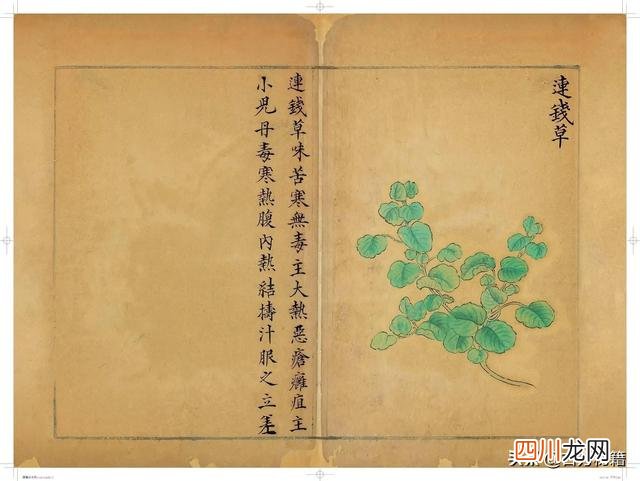 連錢草
連錢草味苦寒無毒主大熱惡瘡癰疽主
小兒丹毒寒熱腹內熱結擣汁服之立差
四川龙网